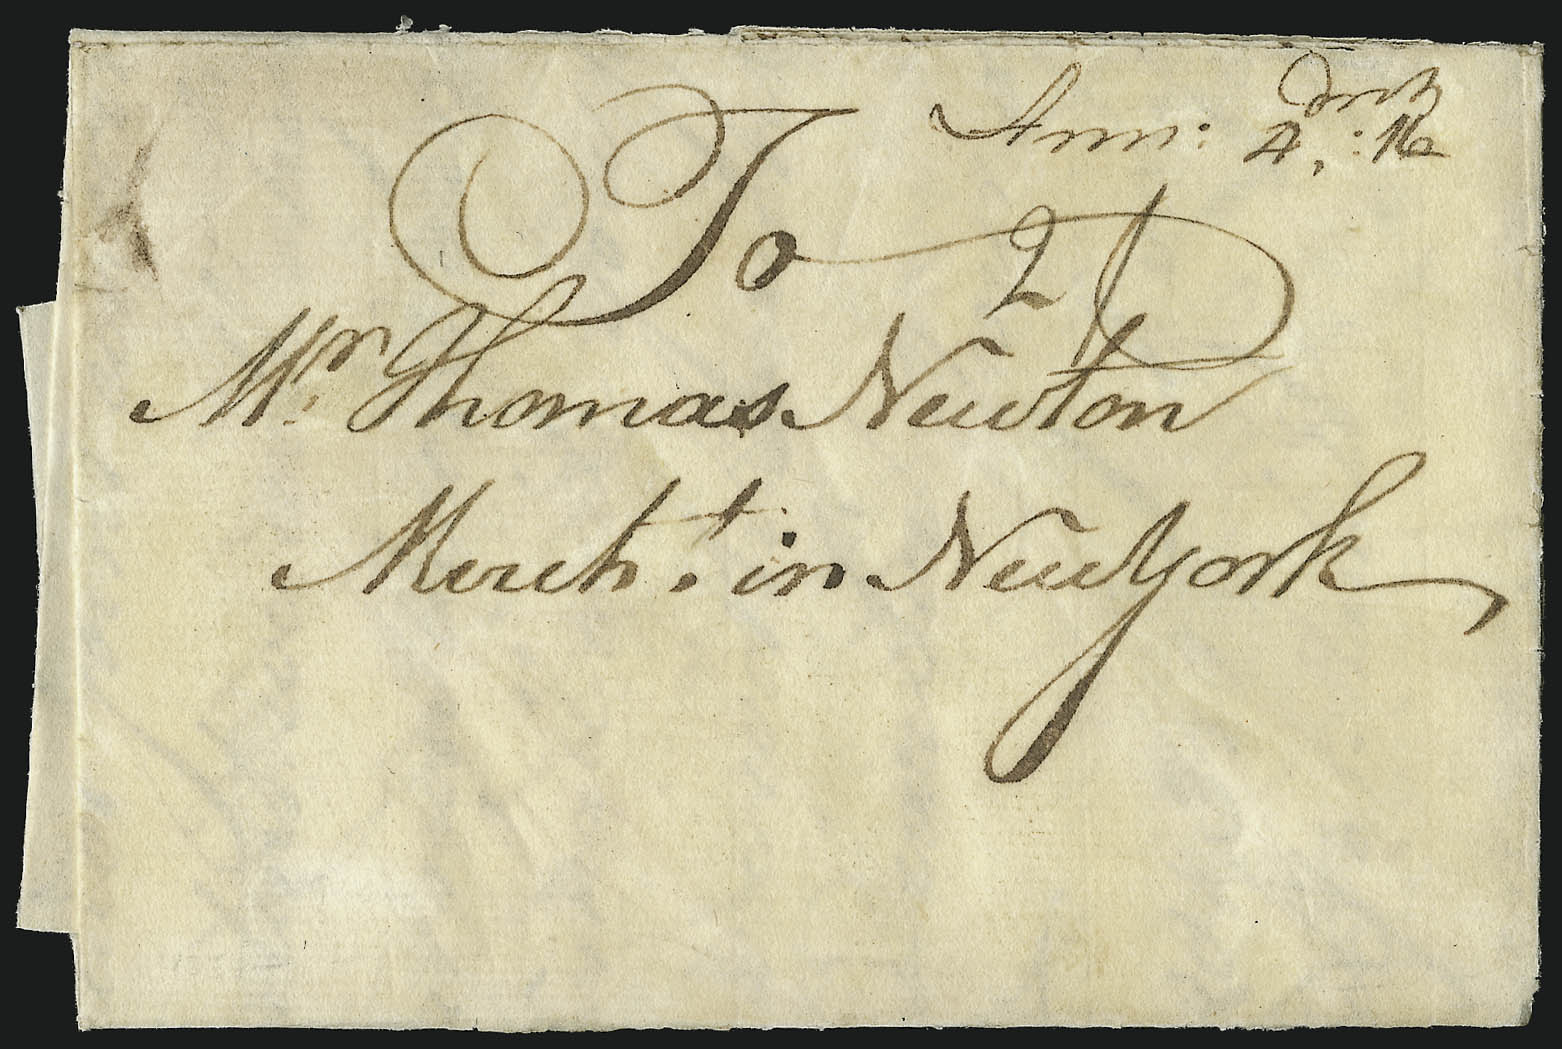 Ann: dwt
4,:16
To 2/
Mr. Thomas Newton
Mercht. in New York